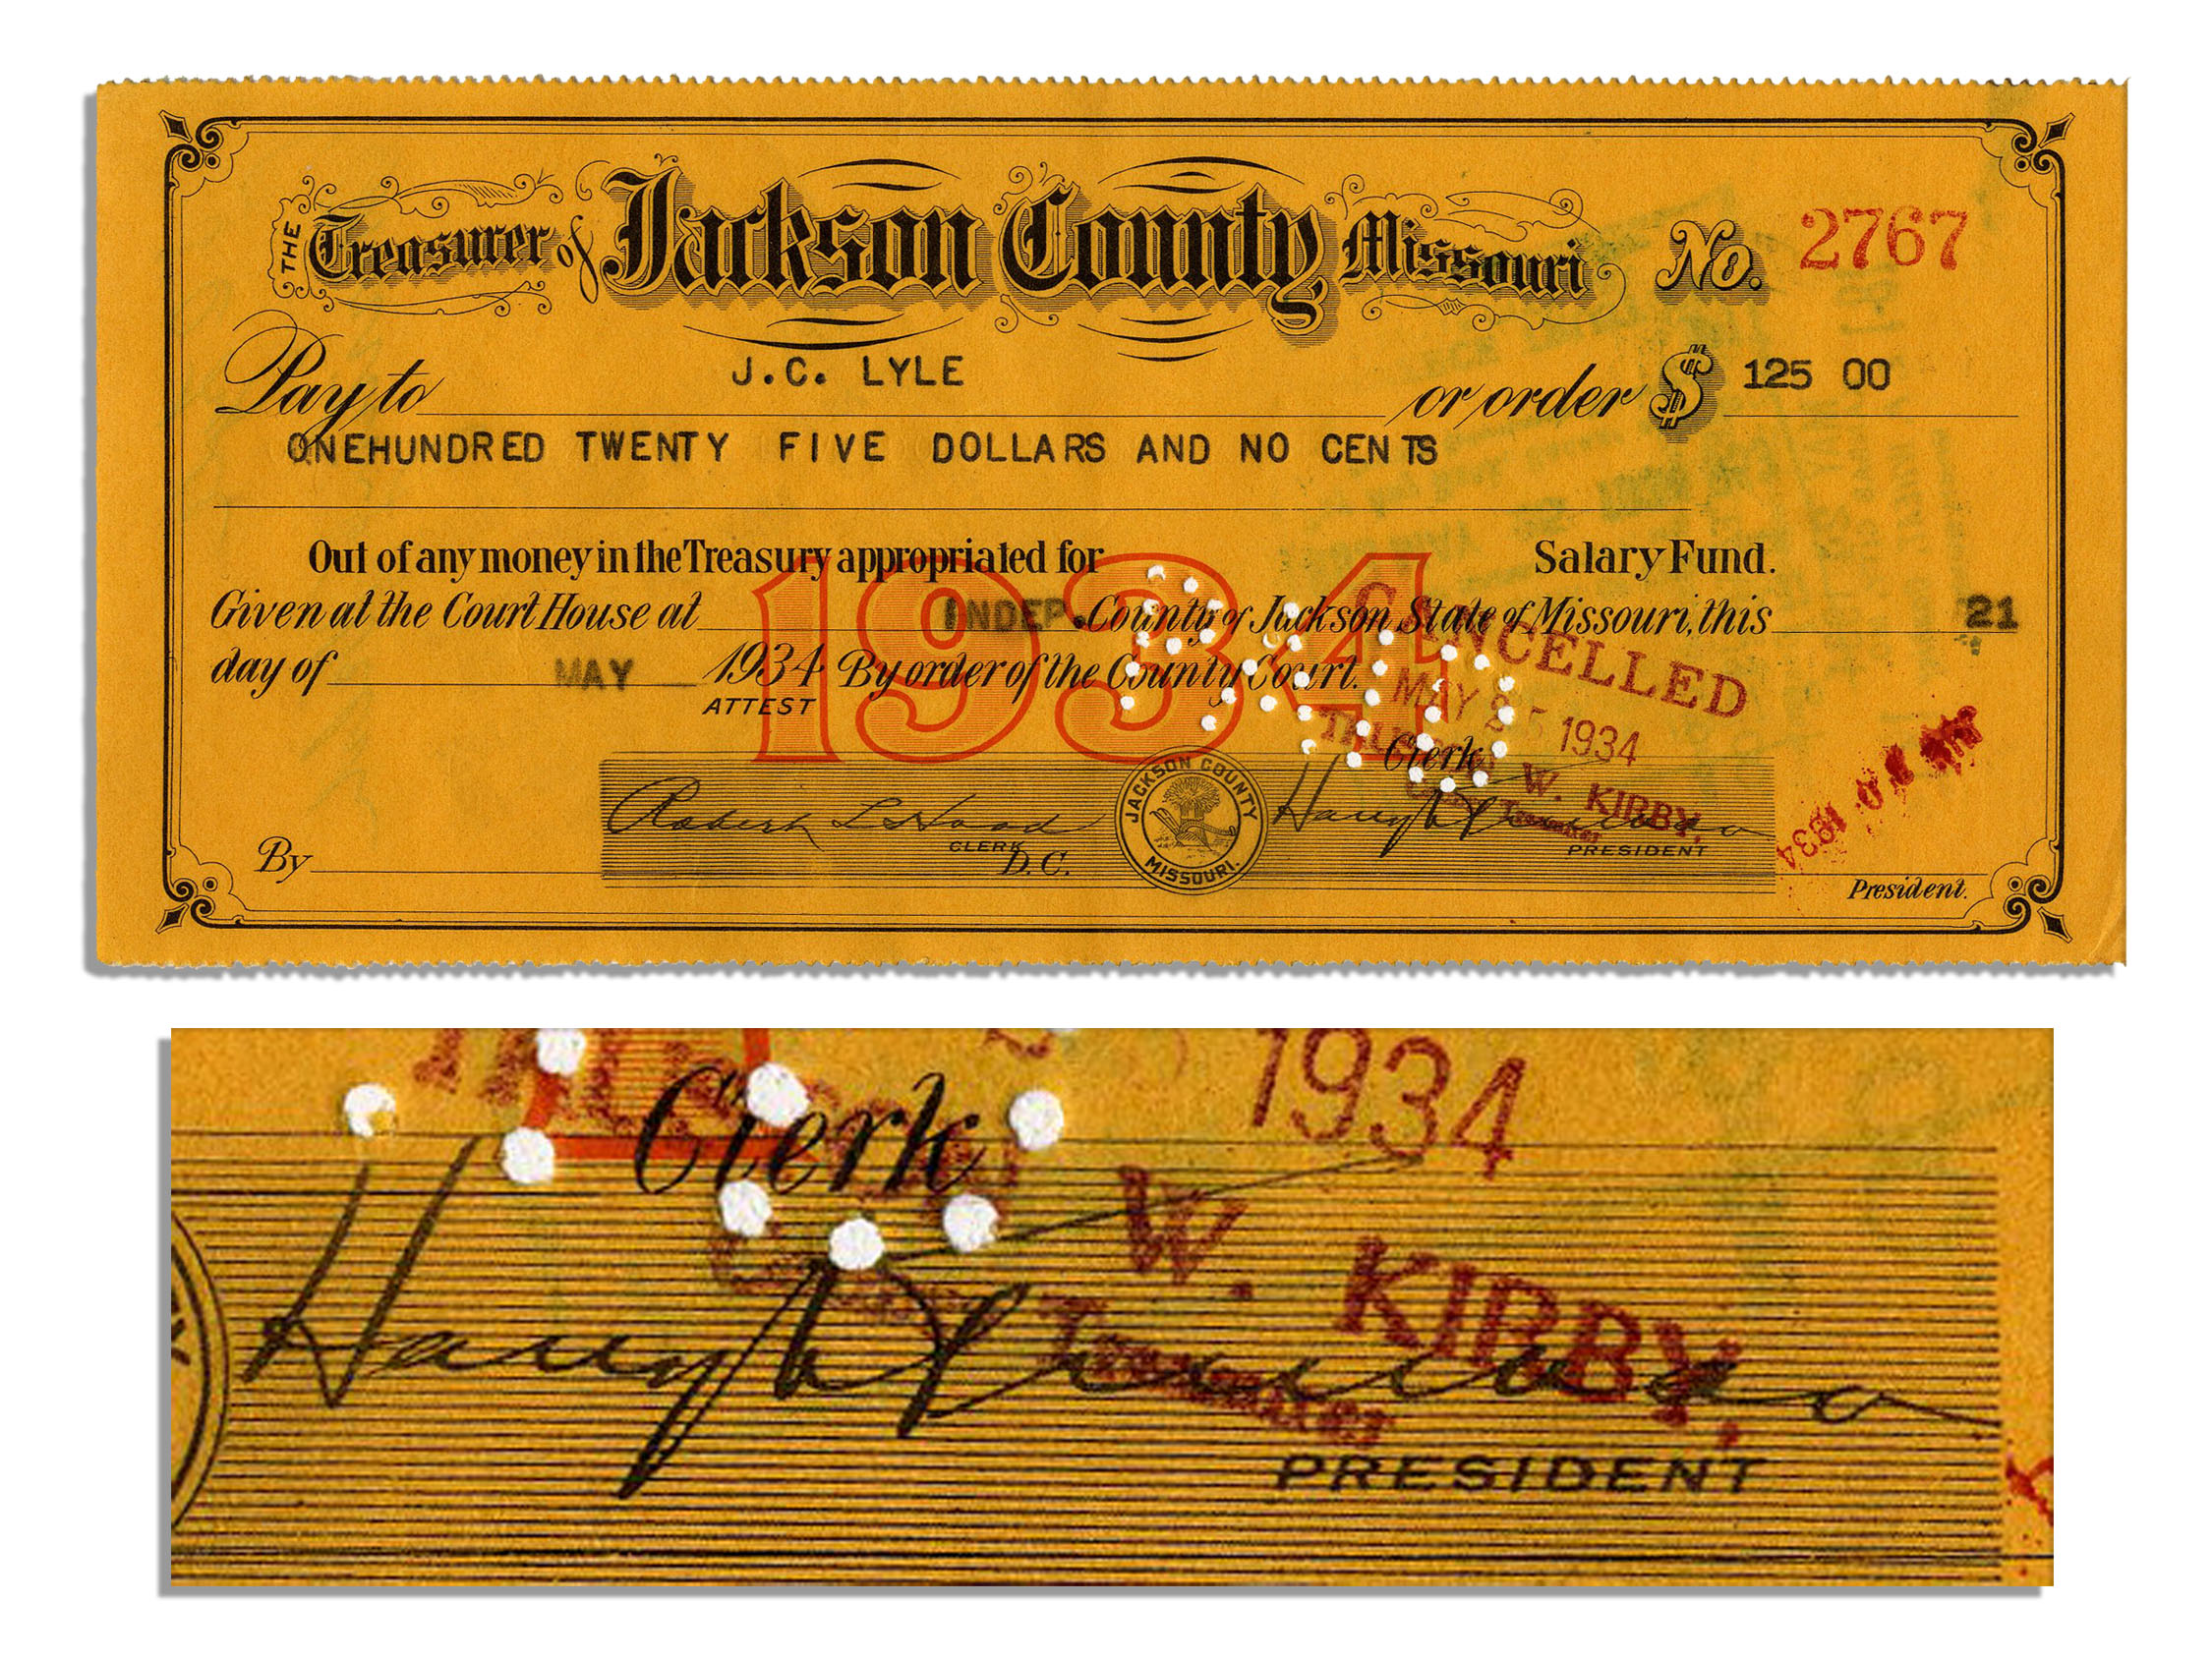 THE Treasurer of Jackson County, Missouri No. 2767
Pay to J.C. LYLE or order $ 125 00
ONEHUNDRED TWENTY FIVE DOLLARS AND NO CENTS
Out of any money in the Treasury appropriated for Salary Fund.
Given at the Court House at INDEP. County of Jackson State of Missouri, this 21
day of MAY 1934 By order of the County Court.
ATTEST
1934
CANCELLED
MAY 25 1934
W. KIRBY,
Treasurer
Clerk
Robert L Hood
CLERK
JACKSON COUNTY
MISSOURI.
Harry S Truman
PRESIDENT
1934
By D.C.
President.
1934
Clerk
W. KIRBY,
Treasurer
Harry S Truman
PRESIDENT